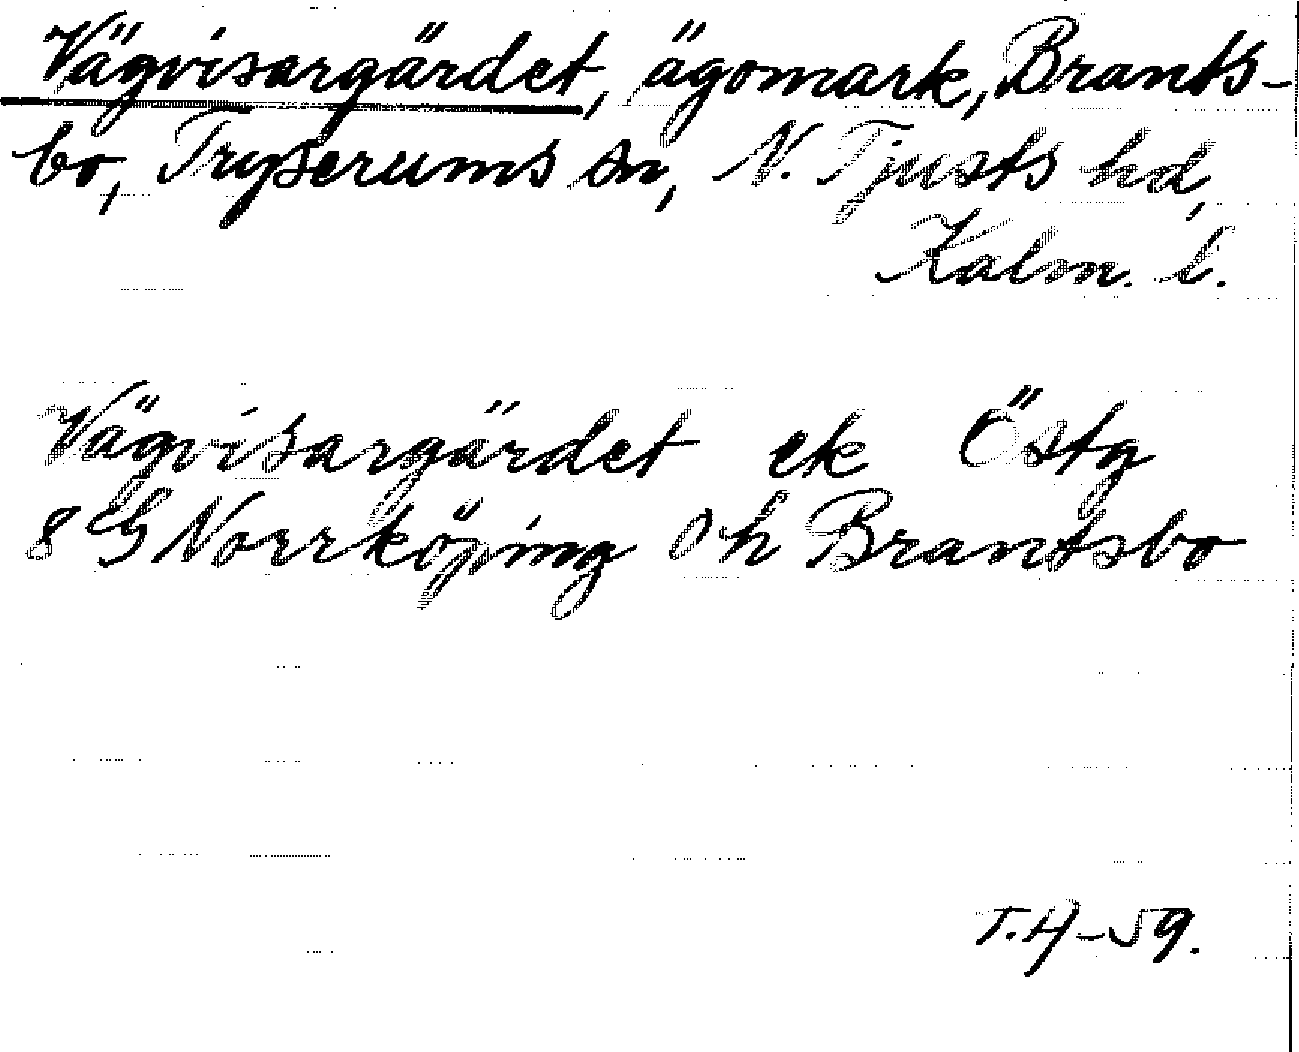 Vägvisargärdet, ägomark, Brants-
bo, Tryserums sn, N. Tjusts hd,
Kalm. l.
Vägvisargärdet ek Östg
8 G Norrköping Oh Brantsbo
T.H-59.